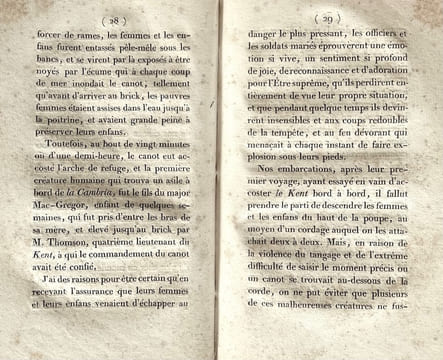 ( 28 )
forcer de rames, les femmes et les en-
fans furent entassés pêle-mêle sous les
bancs, et se virent par là exposés à être
noyés par l'écume qui à chaque coup
de mer inondait le canot, tellement
qu'avant d'arriver au brick, les pauvres
femmes étaient assises dans l'eau jusqu'à
la poitrine, et avaient grande peine à
préserver leurs enfans.
Toutefois, au bout de vingt minutes
ou d'une demi-heure, le canot eut ac-
costé l'arche de refuge, et la première
créature humaine qui trouva un asile à
bord de la Cambria, fut le fils du major
Mac-Gregor, enfant de quelques se-
maines, qui fut pris d'entre les bras de
sa mère, et élevé jusqu'au brick par
M. Thomson, quatrième lieutenant du
Kent, à qui le commandement du canot
avait été confié.
J'ai des raisons pour être certain qu'en
recevant l'assurance que leurs femmes
et leurs enfans venaient d'échapper au
( 29 )
danger le plus pressant, les officiers et
les soldats mariés éprouvèrent une émo-
tion si vive, un sentiment si profond
de joie, de reconnaissance et d'adoration
pour l'Être suprême, qu'ils perdirent en-
tièrement de vue leur propre situation,
et que pendant quelque temps ils devin-
rent insensibles et aux coups redoublés
de la tempête, et au feu dévorant qui
menaçait à chaque instant de faire ex-
plosion sous leurs pieds.
Nos embarcations, après leur pre-
mier voyage, ayant essayé en vain d'ac-
coster le Kent bord à bord, il fallut
prendre le parti de descendre les femmes
et les enfans du haut de la poupe, au
moyen d'un cordage auquel on les atta-
chait deux à deux. Mais, en raison de
la violence du tangage et de l'extrême
difficulté de saisir le moment précis où
un canot se trouvait au-dessous de la
corde, on ne put éviter que plusieurs
de ces malheureuses créatures ne fus-